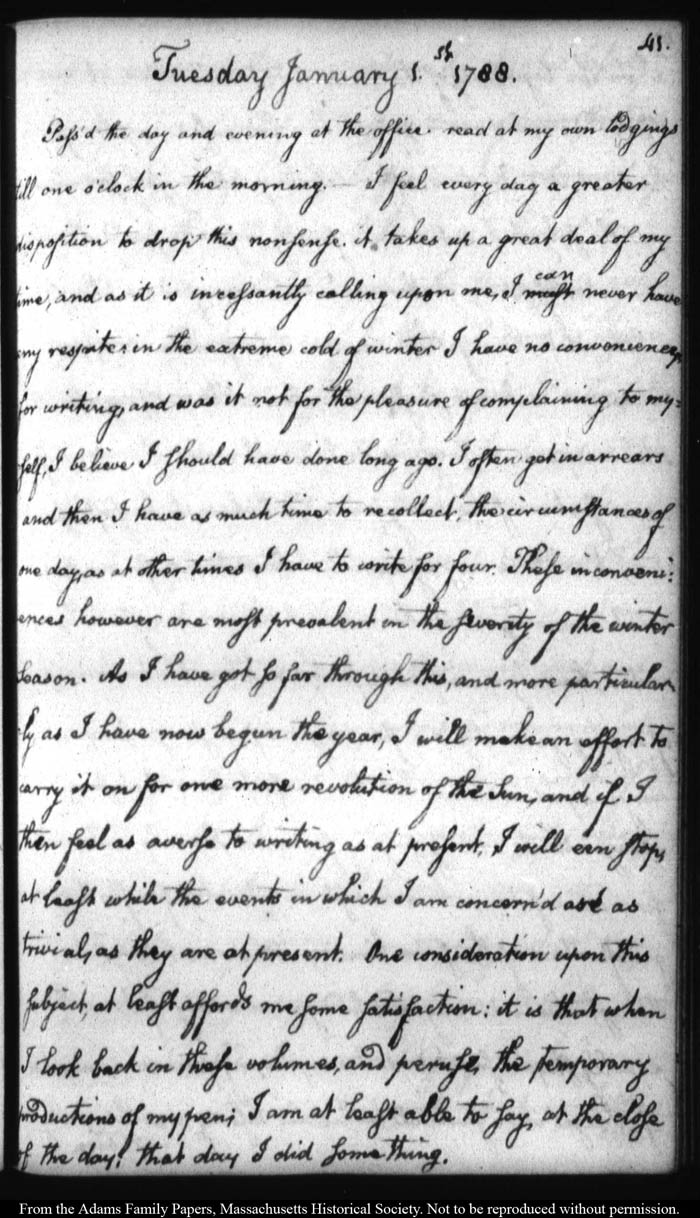 41.
Tuesday January 1.st 1788.
Pass'd the day and evening at the office. read at my own lodgings
till one o'clock in the morning. — I feel every day a greater
disposition to drop this nonsense. it takes up a great deal of my
time, and as it is incessantly calling upon me, I must can never have
any respite: in the extreme cold of winter I have no conveniency
for writing, and was it not for the pleasure of complaining to my=
self, I believe I should have done long ago. I often get in arrears
and then I have as much time to recollect, the circumstances of
one day, as at other times I have to write for four. These inconveni:
ences however are most prevalent in the severity of the winter
season. As I have got so far through this, and more particular
ly as I have now begun the year, I will make an effort to
carry it on for one more revolution of the Sun, and if I
then feel as averse to writing as at present, I will een stop,
at least while the events in which I am concern'd are as
trivial, as they are at present. One consideration upon this
subject, at least affords me some satisfaction: it is that when
I look back in these volumes, and peruse, the temporary
productions of my pen; I am at least able to say, at the close
of the day; that day I did something.
From the Adams Family Papers, Massachusetts Historical Society. Not to be reproduced without permission.